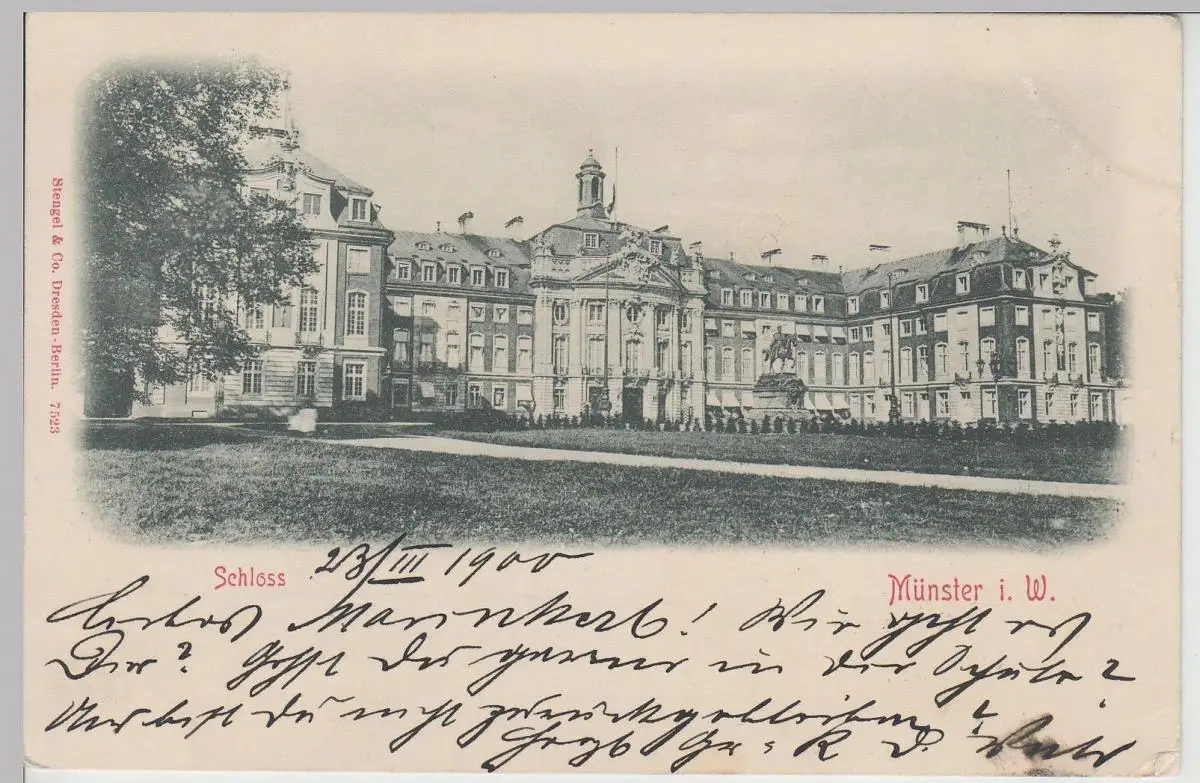 Stengel & Co. Dresden-Berlin. 7523
Schloss
23/III 1900
Münster i. W.
Liebes Marinkerl! Wie geht es
Dir? Gehst du gerne in der Schule?
Und bist du nicht zurückgeblieben?
Gr. K. D.